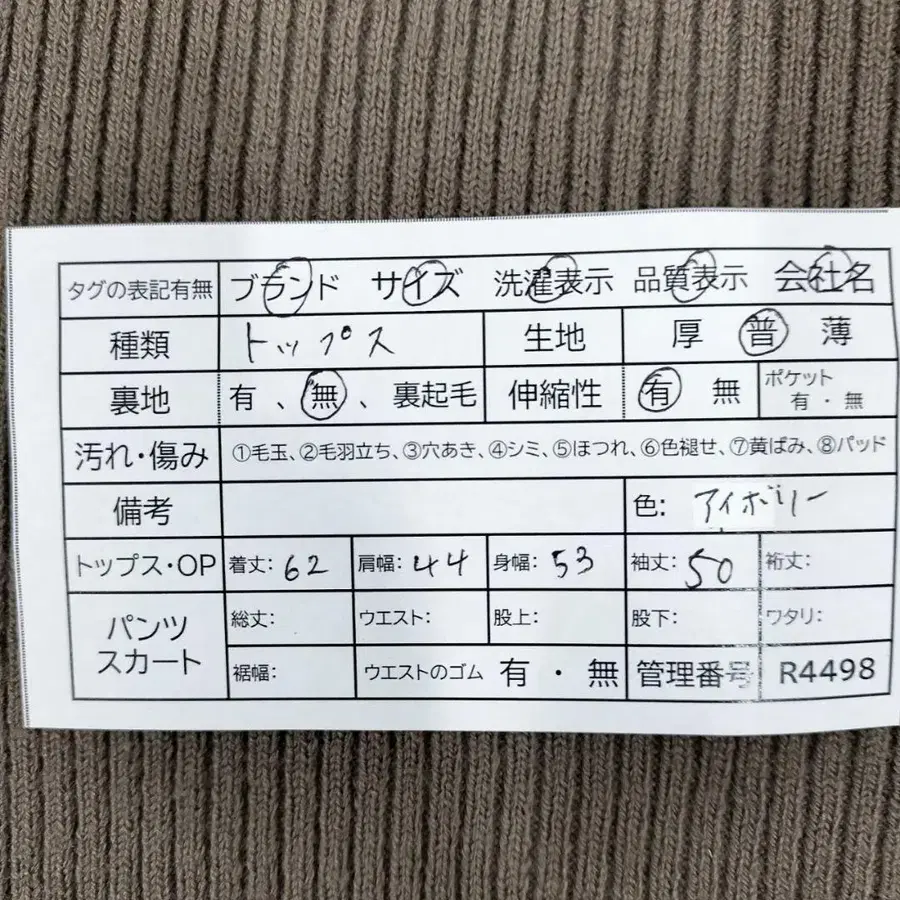 タグの表記有無 ブランド サイズ 洗濯表示 品質表示 会社名
種類 トップス 生地 厚 普 薄
裏地 有 、 無 、 裏起毛 伸縮性 有 無 ポケット 有 ・ 無
汚れ・傷み ①毛玉、②毛羽立ち、③穴あき、④シミ、⑤ほつれ、⑥色褪せ、⑦黄ばみ、⑧パッド
備考 色: アイボリー
トップス・OP 着丈: 62 肩幅: 44 身幅: 53 袖丈: 50 裄丈:
パンツ スカート 総丈: ウエスト: 股上: 股下: ワタリ:
裾幅: ウエストのゴム 有 ・ 無 管理番号 R4498